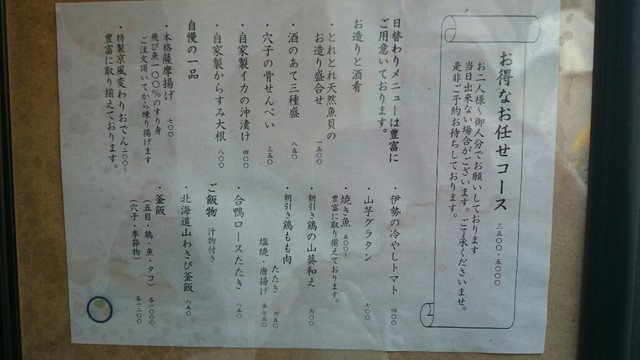 お得なお任せコース 三五〇〇・五〇〇〇
お二人様〜御人分でお願いしております
当日出来ない場合がございます。ご了承くださいませ。
是非ご予約お待ちしております。
日替わりメニューは豊富に
ご用意いております。
お造りと酒肴
・とれとれ天然魚貝の
お造り盛合せ 一五〇〇
・酒のあて三種盛 八五〇
・穴子の骨せんべい 三五〇
・自家製イカの沖漬け 四〇〇
・自家製からすみ大根 八〇〇
自慢の一品
・本格薩摩揚げ 七〇〇
飛び魚一〇〇％のすり身
ご注文頂いてから練り揚げます
・特製京風変わりおでん二〇〇〜
豊富に取り揃えております。
・伊勢の冷やしトマト 四〇〇
・山芋グラタン 七〇〇
・焼き魚 五〇〇〜
豊富に取り揃えております。
・朝引き鶏の山葵和え 六〇〇
・朝引き鶏もも肉
たたき 六五〇
塩焼・唐揚げ 各七五〇
・合鴨ロースたたき 八五〇
ご飯物 汁物付き
・北海道山わさび釜飯 八五〇
・釜飯
（五目・鶏・魚・タコ） 各一〇〇〇
（穴子・季節物） 各一二〇〇